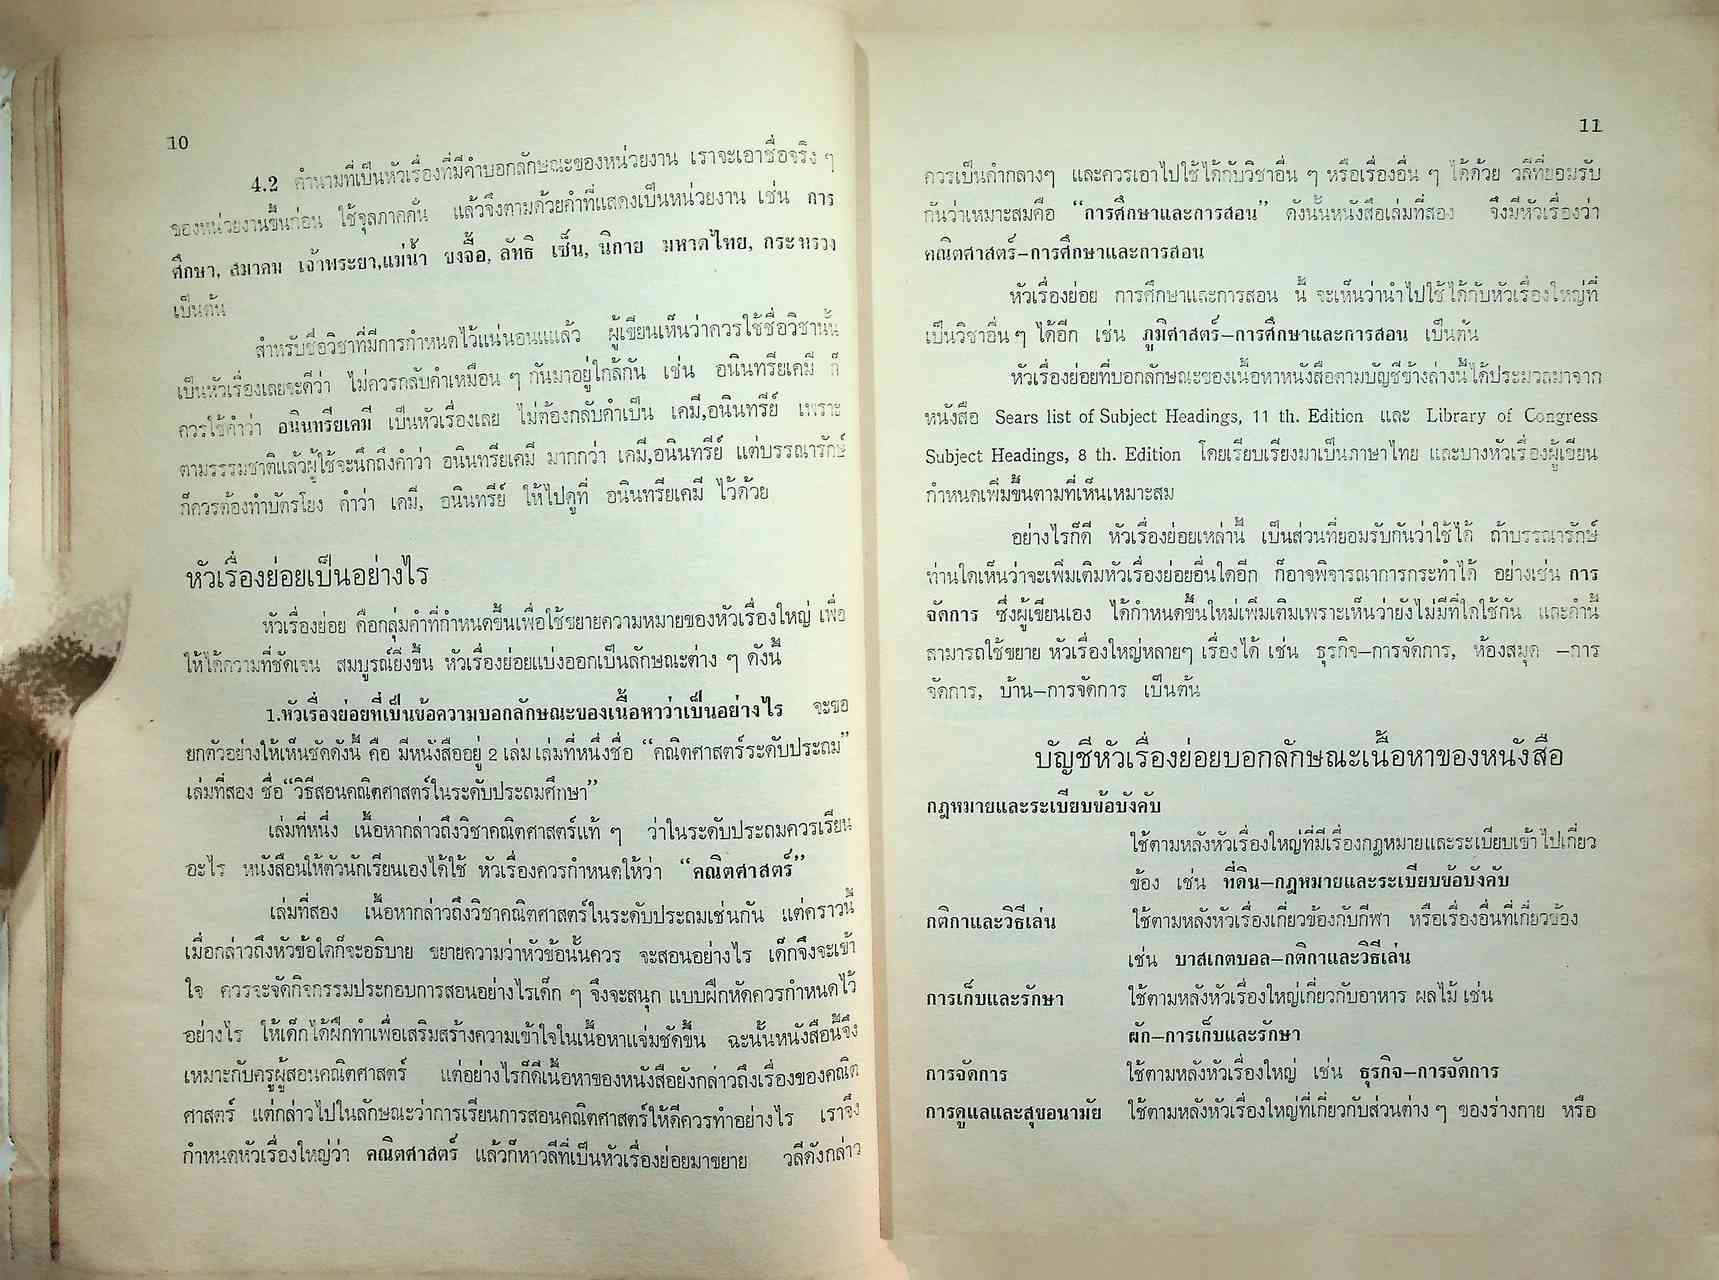 10
4.2 คำนามที่เป็นหัวเรื่องที่มีคำบอกลักษณะของหน่วยงาน เราจะเอาชื่อจริง ๆ
ของหน่วยงานขึ้นก่อน ใช้จุลภาคคั่น แล้วจึงตามด้วยคำที่แสดงเป็นหน่วยงาน เช่น การ
ศึกษา, สมาคม เจ้าพระยา,แม่น้ำ ขงจื้อ, ลัทธิ เซ็น, นิกาย มหาดไทย, กระทรวง
เป็นต้น
สำหรับชื่อวิชาที่มีการกำหนดไว้แน่นอนแล้ว ผู้เขียนเห็นว่าควรใช้ชื่อวิชานั้น
เป็นหัวเรื่องเลยจะดีว่า ไม่ควรกลับคำเหมือน ๆ กันมาอยู่ใกล้กัน เช่น อนินทรียเคมี ก็
ควรใช้คำว่า อนินทรียเคมี เป็นหัวเรื่องเลย ไม่ต้องกลับคำเป็น เคมี,อนินทรีย์ เพราะ
ตามธรรมชาติแล้วผู้ใช้จะนึกถึงคำว่า อนินทรียเคมี มากกว่า เคมี,อนินทรีย์ แต่บรรณารักษ์
ก็ควรต้องทำบัตรโยง คำว่า เคมี, อนินทรีย์ ให้ไปดูที่ อนินทรียเคมี ไว้ด้วย
หัวเรื่องย่อยเป็นอย่างไร
หัวเรื่องย่อย คือกลุ่มคำที่กำหนดขึ้นเพื่อใช้ขยายความหมายของหัวเรื่องใหญ่ เพื่อ
ให้ได้ความที่ชัดเจน สมบูรณ์ยิ่งขึ้น หัวเรื่องย่อยแบ่งออกเป็นลักษณะต่าง ๆ ดังนี้
1.หัวเรื่องย่อยที่เป็นข้อความบอกลักษณะของเนื้อหาว่าเป็นอย่างไร จะขอ
ยกตัวอย่างให้เห็นชัดดังนี้ คือ มีหนังสืออยู่ 2 เล่ม เล่มที่หนึ่งชื่อ “คณิตศาสตร์ระดับประถม”
เล่มที่สอง ชื่อ“วิธีสอนคณิตศาสตร์ในระดับประถมศึกษา”
เล่มที่หนึ่ง เนื้อหากล่าวถึงวิชาคณิตศาสตร์แท้ ๆ ว่าในระดับประถมควรเรียน
อะไร หนังสือนให้ตัวนักเรียนเองได้ใช้ หัวเรื่องควรกำหนดให้ว่า “คณิตศาสตร์”
เล่มที่สอง เนื้อหากล่าวถึงวิชาคณิตศาสตร์ในระดับประถมเช่นกัน แต่คราวนี้
เมื่อกล่าวถึงหัวข้อใดก็จะอธิบาย ขยายความว่าหัวข้อนั้นควร จะสอนอย่างไร เด็กจึงจะเข้า
ใจ ควรจะจัดกิจกรรมประกอบการสอนอย่างไรเด็ก ๆ จึงจะสนุก แบบฝึกหัดควรกำหนดไว้
อย่างไร ให้เด็กได้ฝึกทำเพื่อเสริมสร้างความเข้าใจในเนื้อหาแจ่มชัดขึ้น ฉะนั้นหนังสือนี้จึง
เหมาะกับครูผู้สอนคณิตศาสตร์ แต่อย่างไรก็ดีเนื้อหาของหนังสือยังกล่าวถึงเรื่องของคณิต
ศาสตร์ แต่กล่าวไปในลักษณะว่าการเรียนการสอนคณิตศาสตร์ให้ดีควรทำอย่างไร เราจึง
กำหนดหัวเรื่องใหญ่ว่า คณิตศาสตร์ แล้วก็หาวลีที่เป็นหัวเรื่องย่อยมาขยาย วลีดังกล่าว
11
ควรเป็นคำกลางๆ และควรเอาไปใช้ได้กับวิชาอื่น ๆ หรือเรื่องอื่น ๆ ได้ด้วย วลีที่ยอมรับ
กันว่าเหมาะสมคือ “การศึกษาและการสอน” ดังนั้นหนังสือเล่มที่สอง จึงมีหัวเรื่องว่า
คณิตศาสตร์–การศึกษาและการสอน
หัวเรื่องย่อย การศึกษาและการสอน นี้ จะเห็นว่านำไปใช้ได้กับหัวเรื่องใหญ่ที่
เป็นวิชาอื่น ๆ ได้อีก เช่น ภูมิศาสตร์–การศึกษาและการสอน เป็นต้น
หัวเรื่องย่อยที่บอกลักษณะของเนื้อหาหนังสือตามบัญชีข้างล่างนี้ได้ประมวลมาจาก
หนังสือ Sears list of Subject Headings, 11 th. Edition และ Library of Congress
Subject Headings, 8 th. Edition โดยเรียบเรียงมาเป็นภาษาไทย และบางหัวเรื่องผู้เขียน
กำหนดเพิ่มขึ้นตามที่เห็นเหมาะสม
อย่างไรก็ดี หัวเรื่องย่อยเหล่านี้ เป็นส่วนที่ยอมรับกันว่าใช้ได้ ถ้าบรรณารักษ์
ท่านใดเห็นว่าจะเพิ่มเติมหัวเรื่องย่อยอื่นใดอีก ก็อาจพิจารณาการกระทำได้ อย่างเช่น การ
จัดการ ซึ่งผู้เขียนเอง ได้กำหนดขึ้นใหม่เพิ่มเติมเพราะเห็นว่ายังไม่มีที่ใดใช้กัน และคำนี้
สามารถใช้ขยาย หัวเรื่องใหญ่หลายๆ เรื่องได้ เช่น ธุรกิจ–การจัดการ, ห้องสมุด –การ
จัดการ, บ้าน–การจัดการ เป็นต้น
บัญชีหัวเรื่องย่อยบอกลักษณะเนื้อหาของหนังสือ
กฎหมายและระเบียบข้อบังคับ
ใช้ตามหลังหัวเรื่องใหญ่ที่มีเรื่องกฎหมายและระเบียบเข้าไปเกี่ยว
ข้อง เช่น ที่ดิน–กฎหมายและระเบียบข้อบังคับ
กติกาและวิธีเล่น ใช้ตามหลังหัวเรื่องเกี่ยวข้องกับกีฬา หรือเรื่องอื่นที่เกี่ยวข้อง
เช่น บาสเกตบอล–กติกาและวิธีเล่น
การเก็บและรักษา ใช้ตามหลังหัวเรื่องใหญ่เกี่ยวกับอาหาร ผลไม้ เช่น
ผัก–การเก็บและรักษา
การจัดการ ใช้ตามหลังหัวเรื่องใหญ่ เช่น ธุรกิจ–การจัดการ
การดูแลและสุขอนามัย ใช้ตามหลังหัวเรื่องใหญ่ที่เกี่ยวกับส่วนต่าง ๆ ของร่างกาย หรือ